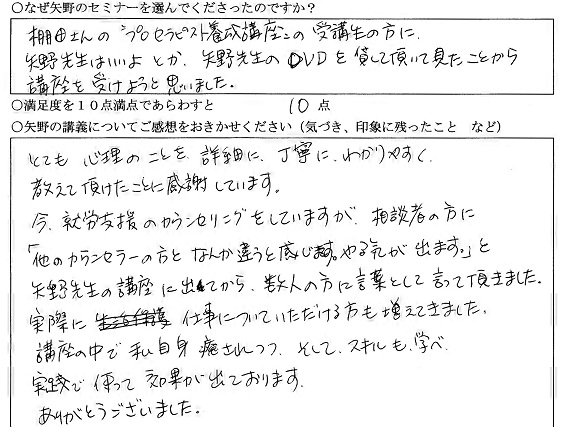 ○なぜ矢野のセミナーを選んでくださったのですか?
棚田さんの"プロセラピスト養成講座"の受講生の方に、
矢野先生はいいよとか、矢野先生のDVDを貸して頂いて見たことから
講座を受けようと思いました。
○満足度を10点満点であらわすと 10 点
○矢野の講義についてご感想をおきかせください(気づき、印象に残ったこと など)
とても心理のことを、詳細に、丁寧に、わかりやすく、
教えて頂けたことに感謝しています。
今、就労支援のカウンセリングをしていますが、相談者の方に
「他のカウンセラーの方となんか違うと感じます。やる気が出ます。」と
矢野先生の講座に出てから、数人の方に言葉として言って頂きました。
実際に 仕事についていただける方も増えてきました。
講座の中で私自身癒されつつ、そして、スキルも学べ、
実践で使って効果が出ております。
ありがとうございました。